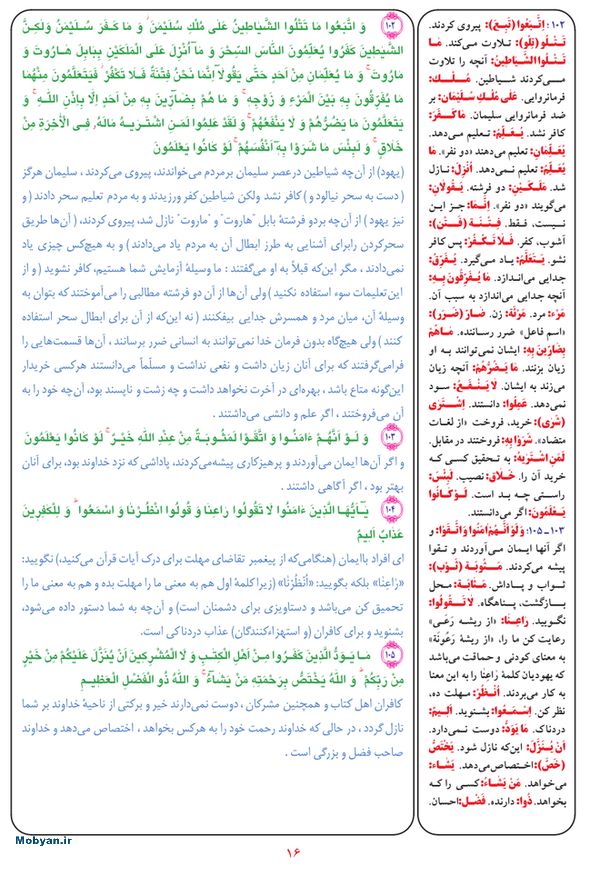 ۱۰۲ وَ اتَّبَعُوا مَا تَتْلُوا الشَّيَاطِينُ عَلَى مُلْكِ سُلَيْمَنَ ۖ وَ مَا كَفَرَ سُلَيْمَنُ وَلَكِنَّ
الشَّيَطِينَ كَفَرُوا يُعَلِّمُونَ النَّاسَ السِّحْرَ وَ مَآ اُنْزِلَ عَلَى الْمَلَكَيْنِ بِبَابِلَ هَارُوتَ وَ
مَارُوتَ ۚ وَ مَا يُعَلِّمَانِ مِنْ اَحَدٍ حَتَّى يَقُولَآ اِنَّمَا نَحْنُ فِتْنَةٌ فَلَا تَكْفُرْ ۖ فَيَتَعَلَّمُونَ مِنْهُمَا
مَا يُفَرِّقُونَ بِهِ بَيْنَ الْمَرْءِ وَ زَوْجِهِ ۚ وَ مَا هُمْ بِضَآرِّينَ بِهِ مِنْ اَحَدٍ اِلَّا بِاِذْنِ اللَّـهِ ۚ وَ
يَتَعَلَّمُونَ مَا يَضُرُّهُمْ وَ لَا يَنْفَعُهُمْ ۚ وَ لَقَدْ عَلِمُوا لَمَنِ اشْتَرَيهُ مَالَهُ فِى الْاَخِرَةِ مِنْ
خَلَاقٍ ۚ وَ لَبِئْسَ مَا شَرَوْا بِهِ اَنْفُسَهُمْ ۚ لَوْ كَانُوا يَعْلَمُونَ
(یهود) از آن‌چه شیاطین درعصر سلیمان برمردم می‌خواندند، پیروی می‌کردند ، سلیمان هرگز
( دست به سحر نیالود و ) کافر نشد ولکن شیاطین کفر ورزیدند و به مردم تعلیم سحر دادند ( و
نیز یهود ) از آن‌چه بردو فرشتهٔ بابل "هاروت" و "ماروت" نازل شد، پیروی کردند ، (آن‌ها طریق
سحرکردن رابرای آشنایی به طرز ابطال آن به مردم یاد می‌دادند ) و به هیچ‌کس چیزی یاد
نمی‌دادند ، مگر این‌که قبلاً به او می‌گفتند : ما وسیلهٔ آزمایش شما هستیم، کافر نشوید ( و از
این‌تعلیمات سوء استفاده نکنید ) ولی آن‌ها از آن دو فرشته مطالبی را می‌آموختند که بتوان به
وسیلهٔ آن، میان مرد و همسرش جدایی بیفکنند ( نه این‌که از آن برای ابطال سحر استفاده
کنند ) ولی هیچ‌گاه بدون فرمان خدا نمی‌توانند به انسانی ضرر برسانند ، آن‌ها قسمت‌هایی را
فرامی‌گرفتند که برای آنان زیان داشت و نفعی نداشت و مسلّماً می‌دانستند هرکسی خریدار
این‌گونه متاع باشد ، بهره‌ای در آخرت نخواهد داشت و چه زشت و ناپسند بود، آن‌چه خود را به
آن می‌فروختند ، اگر علم و دانشی می‌داشتند .
۱۰۳ وَ لَوْ اَنَّهُمْ ءَامَنُوا وَ اتَّقَوْا لَمَثُوبَةٌ مِنْ عِنْدِ اللَّهِ خَيْرٌ ۖ لَوْ كَانُوا يَعْلَمُونَ
و اگر آن‌ها ایمان می‌آوردند و پرهیزکاری پیشه‌می‌کردند، پاداشی که نزد خداوند بود، برای آنان
بهتر بود ، اگر آگاهی داشتند .
۱۰۴ يَـآاَيُّهَا الَّذِينَ ءَامَنُوا لَا تَقُولُوا رَاعِنَا وَ قُولُوا انْظُرْنَا وَ اسْمَعُوا ۗ وَ لِلْكَفِرِينَ
عَذَابٌ اَلِيمٌ
ای افراد باایمان (هنگامی‌که از پیغمبر تقاضای مهلت برای درک آیات قرآن می‌کنید،) نگویید:
«رٰاعِنٰا» بلکه بگویید: «اُنْظُرْنٰا» (زیراکلمهٔ اول هم به معنی ما را مهلت بده و هم به معنی ما را
تحمیق کن می‌باشد و دستاویزی برای دشمنان است) و آن‌چه به شما دستور داده می‌شود،
بشنوید و برای کافران (و استهزاءکنندگان) عذاب دردناکی است.
۱۰۵ مَا يَوَدُّ الَّذِينَ كَفَرُوا مِنْ اَهْلِ الْكِتَبِ وَ لَا الْمُشْرِكِينَ اَنْ يُنَزَّلَ عَلَيْكُمْ مِنْ خَيْرٍ
مِنْ رَبِّكُمْ ۗ وَ اللَّهُ يَخْتَصُّ بِرَحْمَتِهِ مَنْ يَشَآءُ ۚ وَ اللَّهُ ذُو الْفَضْلِ الْعَظِيمِ
کافران اهل کتاب و همچنین مشرکان ، دوست نمی‌دارند خیر و برکتی از ناحیهٔ خداوند بر شما
نازل گردد ، در حالی که خداوند رحمت خود را به هرکس بخواهد ، اختصاص می‌دهد و خداوند
صاحب فضل و بزرگی است .
۱۰۲ : اِتَّبَعُوا (تَبِعَ): پیروی کردند.
تَـتْـلُو (تِلْو): تلاوت می‌کند. مَـا
تَـتْـلُوا الشَّيَاطِينُ: آنچه را تلاوت
مـی‌کـردند شـیاطین. مُـلْـك:
فرمانروایی. عَلَى مُلْكِ سُلَيْمَان: بر
ضد فرمانروایی سلیمان. مَا كَـفَرَ:
کافر نشد. يُـعَـلِّمُ: تـعـلیم مـی‌دهد.
يُعَلِّمَانِ: تعلیم می‌دهند «دو نفر». مَا
يُعَلِّمُ: تعلیم نـمی‌دهد. اُنْزِلَ: نـازل
شد. مَلَـكَـيْنِ: دو فرشته. يَـقُولَانِ:
می‌گویند «دو نفر». اِنَّـمَا: جـز ایـن
نیست، فـقط. فِـتْـنَة (فَـتَنَ):
آشوب، کفر. فَـلَا تَـكْـفُرْ: پس کافر
نشو. يَـتَـعَلَّمُ: یـاد مـی‌گیرد. يُـفَرِّقُ:
جدایی می‌اندازد. مَا يُفَرِّقُونَ بِهِ:
آنچه جدایی می‌اندازد به سبب آن.
مَرْء: مرد. مَرْئَة: زن. ضَـارّ (ضَرَرَ):
«اسم فاعل» ضرر رسـاننده. مَـاهُمْ
بِضَارِّينَ بِهِ: ایشان نمی‌توانند به او
زیان بزنند. مَا يَضُرُّهُمْ: آنچه زیان
می‌زند به ایشان. لَا يَـنْـفَعُ: سـود
نمی‌دهد. عَمِلُوا: دانستند. اِشْـتَرَى
(شَرْي): خرید، فروخت «از لغـات
متضاد». شَرَوْا بِهِ: فروختند در مقابل.
لَمَنِ اشْتَرَيهُ: به تحقیق کسی که
خرید آن را. خَلَاق: نصیب. لَبِئْسَ:
راستی چه بد است. لَـوْ كَـانُوا
يَعْلَمُونَ: اگر می‌دانستند.
۱۰۳ ـ ۱۰۵: وَ لَوْ اَنَّهُمْ ءَامَنُوا وَ اتَّقَوْا: و
اگر آنها ایمان می‌آوردند و تـقوا
پیشه می‌کردند. مَـثُوبَة (ثَـوْب):
ثـواب و پـاداش. مَـثَـابَة: مـحل
بـازگشت، پـناهگاه. لَا تَـقُولُوا:
نگـویید. رَاعِـنَا: «از ریشه رَعْی»
رعایت کن ما را، «از ریشهٔ رَعُونَة»
به معنای کودنی و حماقت می‌باشد
که یهودیان کلمهٔ رَاعِنَا را به این معنا
به کار می‌بردند. اُنْـظُرْ: مـهلت ده،
نظر کن. اِسْمَعُوا: بشنوید. اَلِيمٌ:
دردناک. مَا يَوَدُّ: دوست نمی‌دارد.
اَنْ يُـنَزَّلَ: این‌که نازل شود. يَخْتَصُّ
(خَصَّ): اختصاص‌می‌دهد. يَشَاءُ:
می‌خواهد. مَنْ يَشَاءُ: کسی را کـه
بخواهد. ذُوا: دارنده. فَضْل: احسان.
Mobyan.ir
۱۶